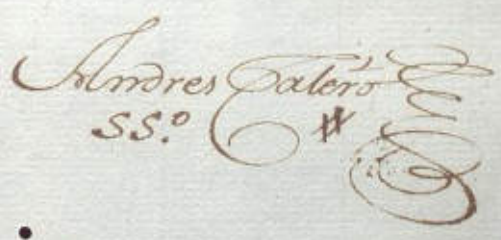 Andres Talero
SS.º #